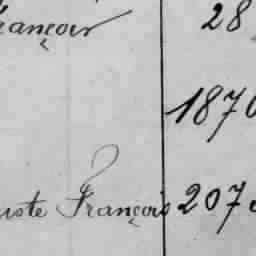 rançois 28
1870
uste François 207